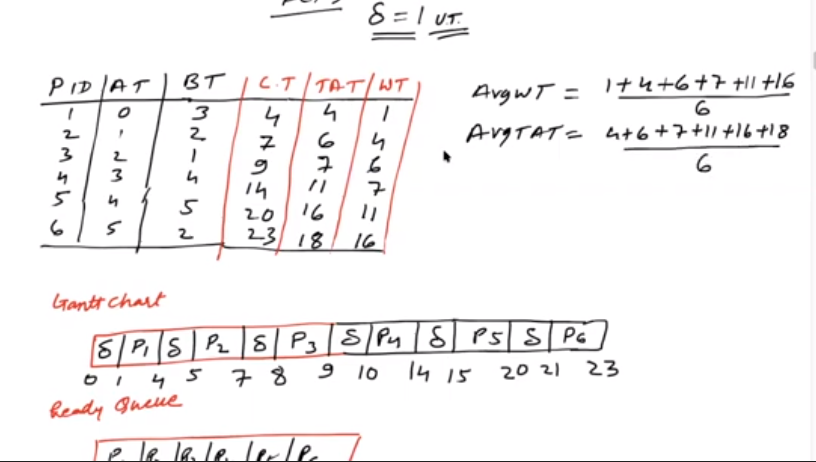 δ = 1 UT.
PID AT BT C.T TAT WT
1 0 3 4 4 1
2 1 2 7 6 4
3 2 1 9 7 6
4 3 4 14 11 7
5 4 5 20 16 11
6 5 2 23 18 16
AvgWT = 1+4+6+7+11+16
6
AvgTAT = 4+6+7+11+16+18
6
Gantt Chart
δ P1 δ P2 δ P3 δ P4 δ P5 δ P6
0 1 4 5 7 8 9 10 14 15 20 21 23
Ready Queue